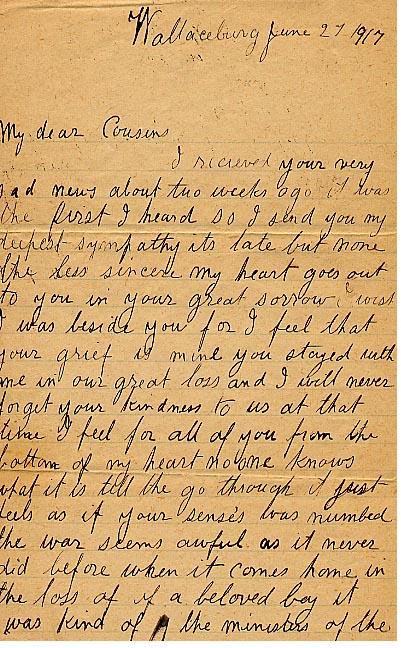 Wallaceburg June 27 1917
My dear Cousins
I recieved your very
sad news about two weeks ago it was
the first I heard so I send you my
deepest sympathy its late but none
the less sincere my heart goes out
to you in your great sorrow I wish
I was beside you for I feel that
your grief is mine you stayed with
me in our great loss and I will never
forget your kindness to us at that
time I feel for all of you from the
bottom of my heart no one knows
what it is till the go through it just
feels as if your senses was numbed
the war seems awful as it never
did before when it comes home in
the loss of if a beloved boy it
was kind of the ministers of the